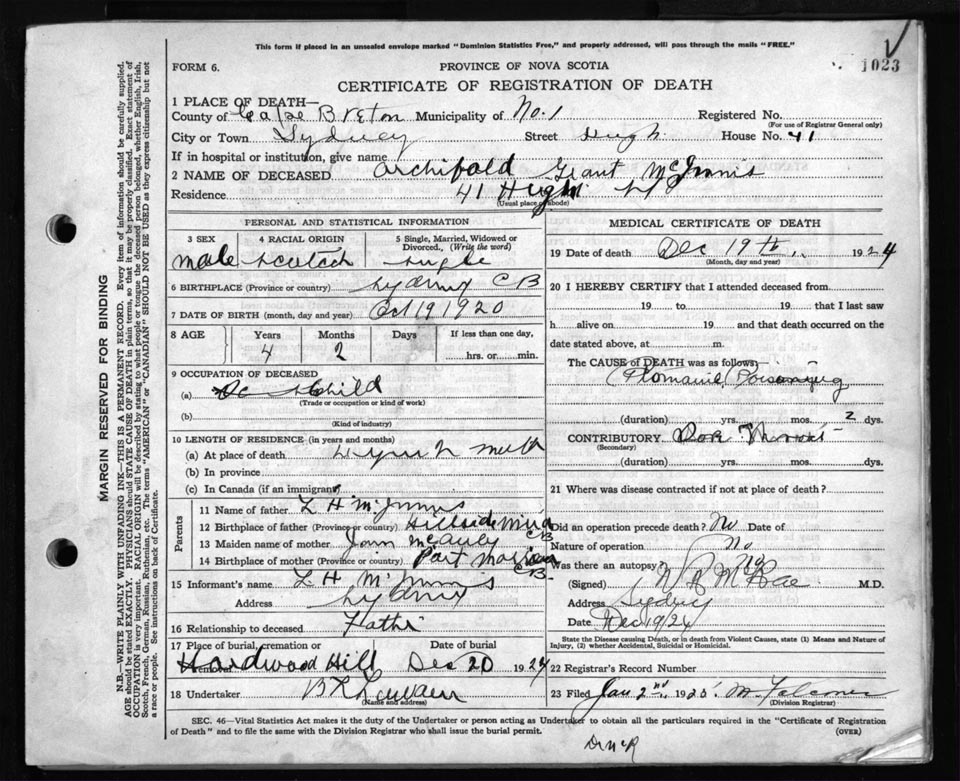 This form if placed in an unsealed envelope marked "Dominion Statistics Free," and properly addressed, will pass through the mails "FREE."
FORM 6.
PROVINCE OF NOVA SCOTIA
1023
CERTIFICATE OF REGISTRATION OF DEATH
1 PLACE OF DEATH—
County of Cape Breton Municipality of No. 1 Registered No.
(For use of Registrar General only)
City or Town Sydney Street Hugh House No. 41
If in hospital or institution, give name
2 NAME OF DECEASED Archibald Grant McInnis
Residence 41 Hugh
(Usual place of abode)
PERSONAL AND STATISTICAL INFORMATION
3 SEX 4 RACIAL ORIGIN 5 Single, Married, Widowed or Divorced, (Write the word)
male scotch single
6 BIRTHPLACE (Province or country) Sydney CB
7 DATE OF BIRTH (month, day and year) Oct 19 1920
8 AGE Years Months Days If less than one day,
4 2 hrs. or min.
9 OCCUPATION OF DECEASED
(a) Child
(Trade or occupation or kind of work)
(b)
(Kind of industry)
10 LENGTH OF RESIDENCE (in years and months)
(a) At place of death
(b) In province
(c) In Canada (if an immigrant)
Parents
11 Name of father L H McInnis
12 Birthplace of father (Province or country) Hillside Mira CB
13 Maiden name of mother McAuley
14 Birthplace of mother (Province or country) Port Morien CB
15 Informant's name L H McInnis
Address Sydney
16 Relationship to deceased Father
17 Place of burial, cremation or removal Date of burial
Hardwood Hill Dec 20 1924
18 Undertaker
(Name and address)
MEDICAL CERTIFICATE OF DEATH
19 Date of death Dec 19th 1924
(Month, day and year)
20 I HEREBY CERTIFY that I attended deceased from
19 to 19 that I last saw
h alive on 19 and that death occurred on the
date stated above, at m.
The CAUSE of DEATH was as follows:
Ptomaine Poisoning
(duration) yrs. mos. 2 dys.
CONTRIBUTORY Sore Throat
(Secondary)
(duration) yrs. mos. dys.
21 Where was disease contracted if not at place of death?
Did an operation precede death? No Date of
Nature of operation
Was there an autopsy? No
(Signed) McRae M.D.
Address Sydney
Date Dec 19/24
State the Disease causing Death, or in death from Violent Causes, state (1) Means and Nature of Injury, (2) whether Accidental, Suicidal or Homicidal.
22 Registrar's Record Number
23 Filed Jan 2nd 1925 M. Falconer
(Division Registrar)
SEC. 46—Vital Statistics Act makes it the duty of the Undertaker or person acting as Undertaker to obtain all the particulars required in the "Certificate of Registration
of Death" and to file the same with the Division Registrar who shall issue the burial permit.
(OVER)
MARGIN RESERVED FOR BINDING
N.B.—WRITE PLAINLY WITH UNFADING INK—THIS IS A PERMANENT RECORD. Every item of information should be carefully supplied.
AGE should be stated EXACTLY. PHYSICIANS should STATE CAUSE OF DEATH in plain terms, so that it may be properly classified. Exact statement of
OCCUPATION is very important. RACIAL ORIGIN will be described by stating to what people or tongue the deceased person belonged, whether English, Irish,
Scotch, French, German, Russian, Ruthenian, etc. The terms "AMERICAN" or "CANADIAN" SHOULD NOT BE USED as they express citizenship but not
a race or people. See instructions on back of Certificate.